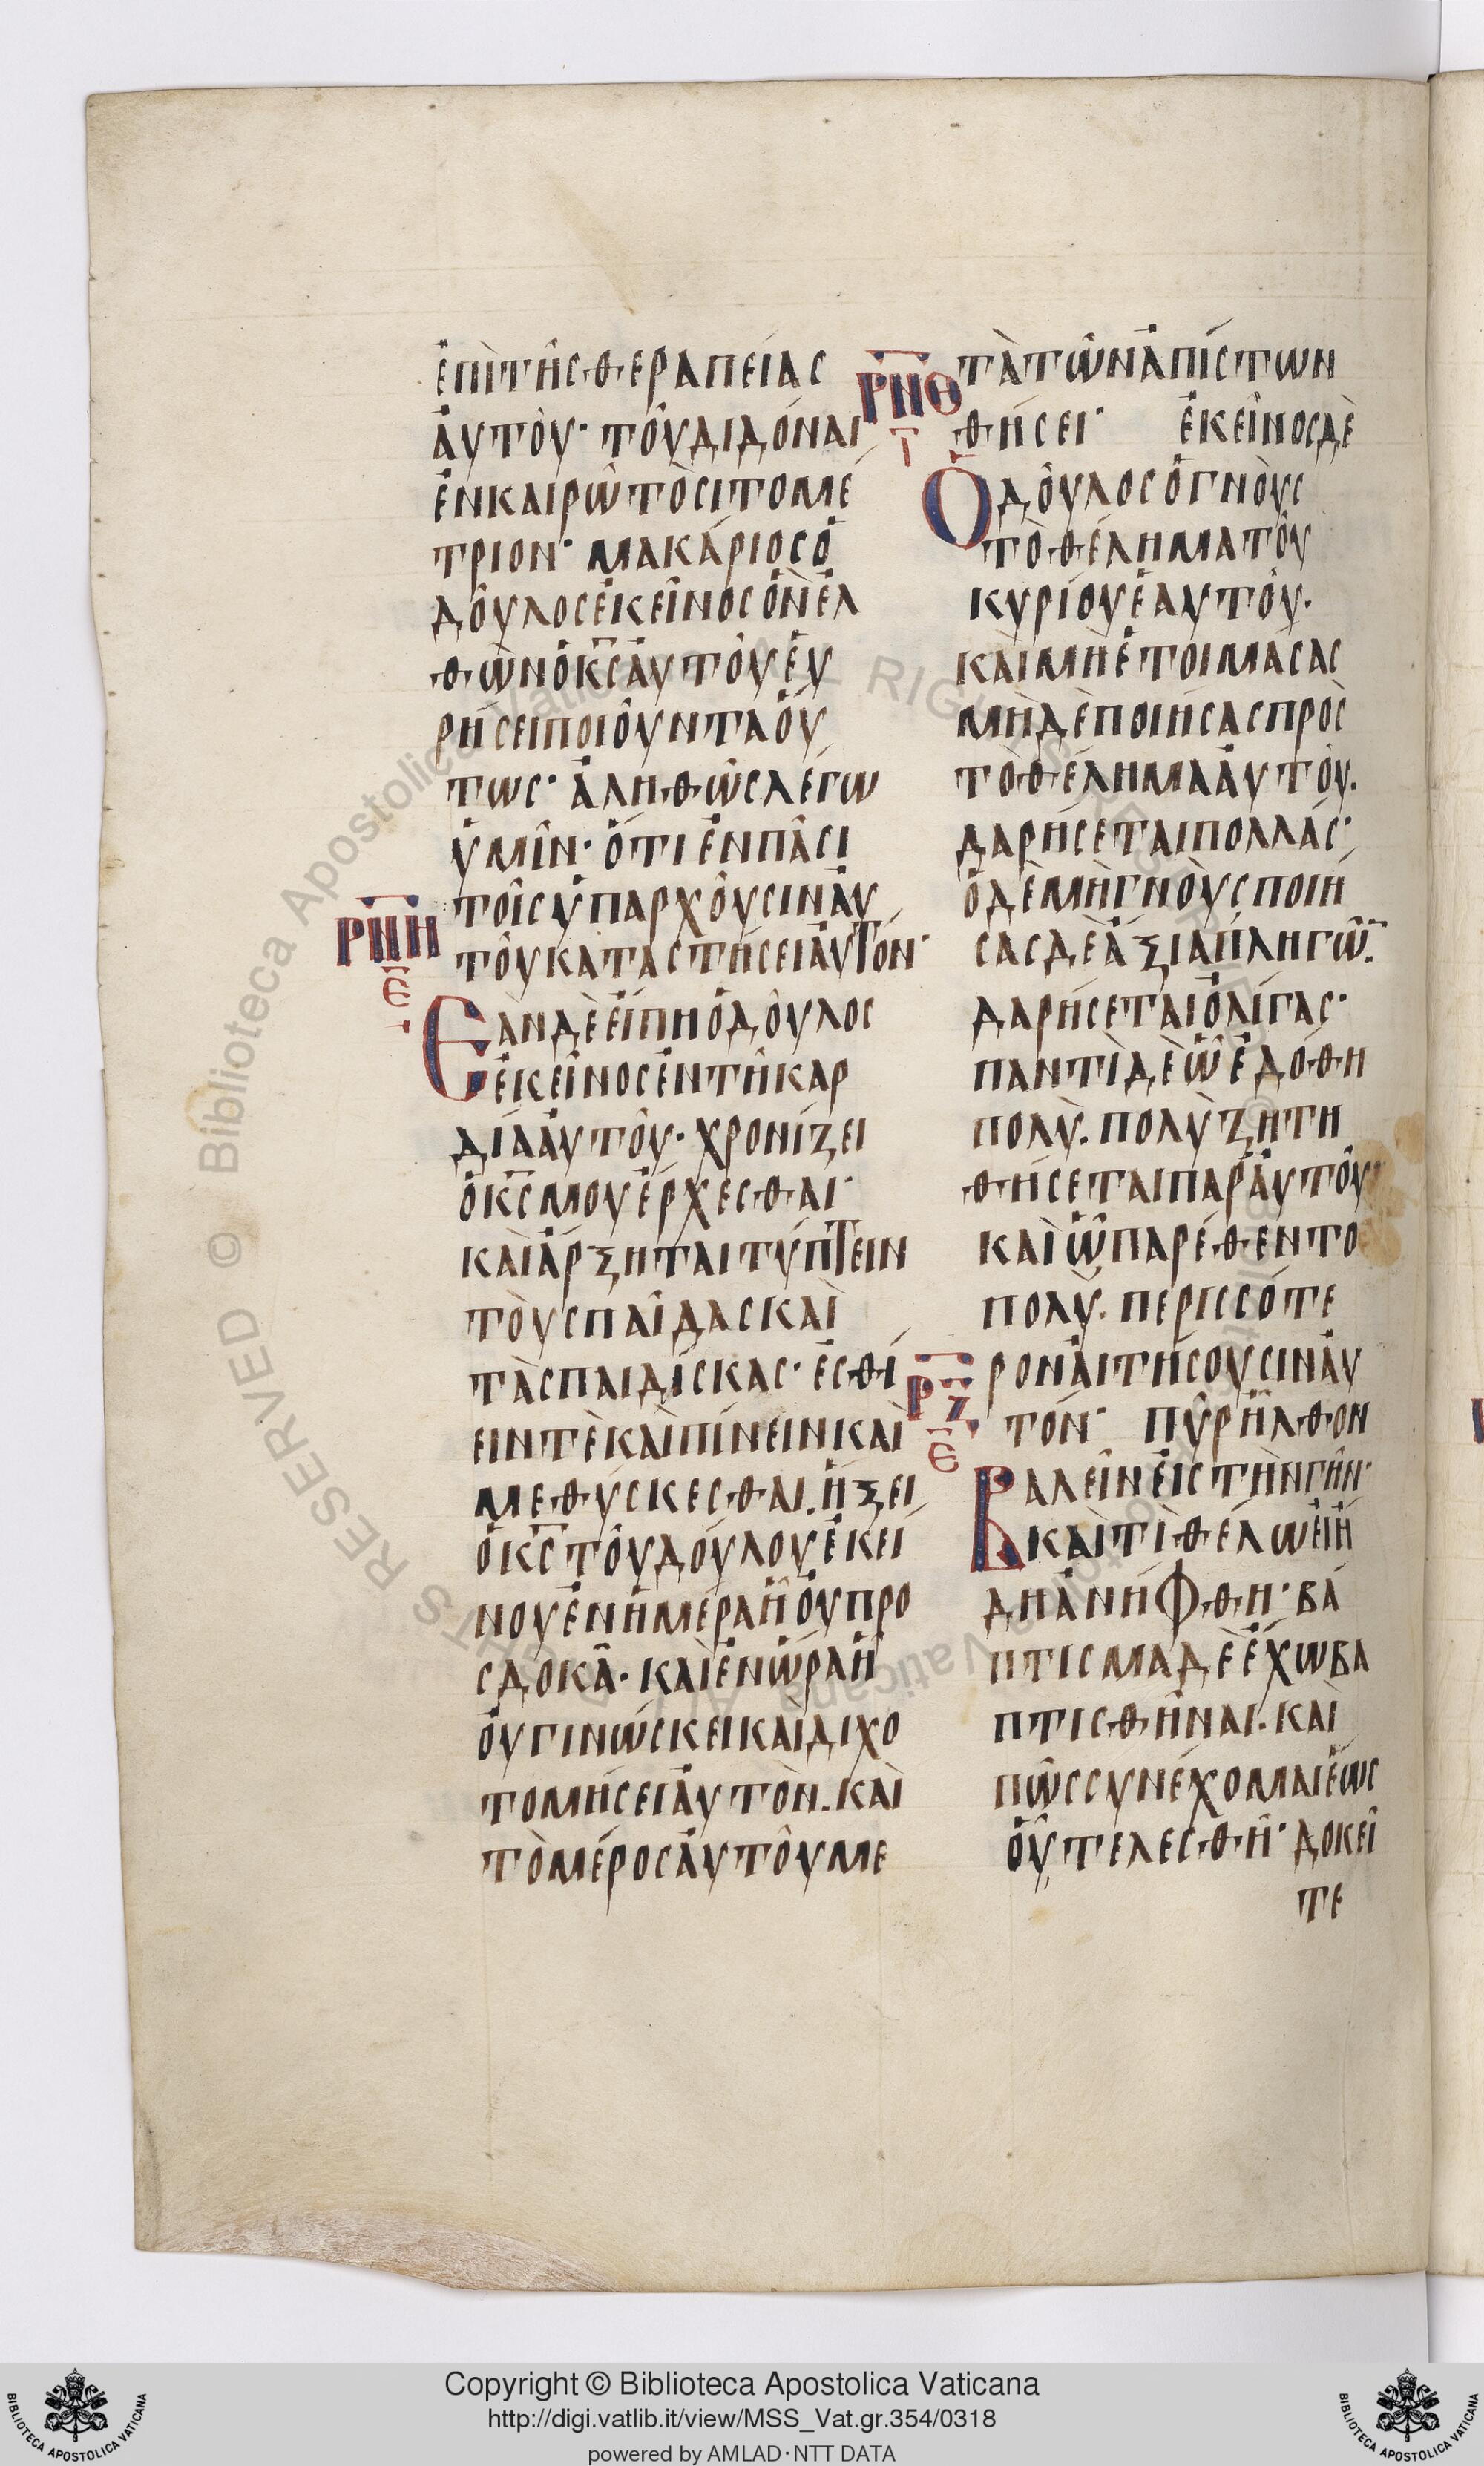 ἐπὶτῆςθεραπείας
ἀυτὸυ· τοῦδιδόναι
ἐνκαιρῶτὸσιτομέ
τριον· μακάριοςὁ
δοῦλοςἐκεῖνοςὃνἐλ
θὼνὁκ̅ς̅ἀυτοῦἑυ
ρήσειποιοῦνταὅυ
τως· ἀληθῶςλέγω
ὑμῖν· ὅτιἐνπᾶσι
τοῖςὑπαρχοῦσινἀυ
τοῦκαταστήσειἀυτόν·
ΡΝΗ
Ε
Ἐὰνδὲἐίπηὁδοῦλος
ἐκεῖνοςἐντῆκαρ
δίαἀυτοῦ· χρονίζει
ὁκ̅ς̅μουἔρχεσθαι·
καὶἄρξηταιτύπτειν
τὸυςπαῖδαςκαὶ
τὰςπαιδίσκας· ἐσθί
ειντὲκαὶπίνεινκαὶ
μεθύσκεσθαι. ἥξει
ὁκ̅ς̅τοῦδούλουἐκεί
νουἐνἡμέραἧὀυπρο
σδοκᾶ· καὶἐνὥραἧ
ὀυγινώσκεικαὶδιχο
τομήσειἀυτὸν. καὶ
τὸμέροςἀυτοῦμε
ΡΝΘ
Γ
τὰτῶνἀπίστων
θήσει· ἐκεῖνοςδὲ
Ὁδοῦλοςὁγνὸυς
τὸθέληματοῦ
κυρίουἑαυτοῦ·
καὶμὴἑτοιμάσας
μὴδὲποιήσαςπρὸς
τὸθέλημαἀυτὸυ.
δαρήσεταιπολλάς·
ὁδὲμὴγνὸυςποιή
σαςδὲἄξιαπληγῶ̅.
δαρήσεταιὀλίγας·
παντὶδὲὧἐδόθη
πολὺ. πολὺζητη
θήσεταιπαρἀυτοῦ·
καὶὧπαρέθεντο
πολὺ. περισσότε
ρονἀιτήσουσινἀυ
τόν· πῦρἦλθον
ΡΞ
Ε
Βαλεῖνἐιςτὴνγῆν·
καὶτὶθέλωἐιἤ
δηἀνήφθη· βά
πτισμαδὲἔχωβα
πτισθῆναι. καὶ
πῶςσυνέχομαιἕως
ὁῦτελεσθῆ· δοκεῖ
τε
Copyright © Biblioteca Apostolica Vaticana
http://digi.vatlib.it/view/MSS_Vat.gr.354/0318
powered by AMLAD·NTT DATA
BIBLIOTECA APOSTOLICA VATICANA
BIBLIOTECA APOSTOLICA VATICANA